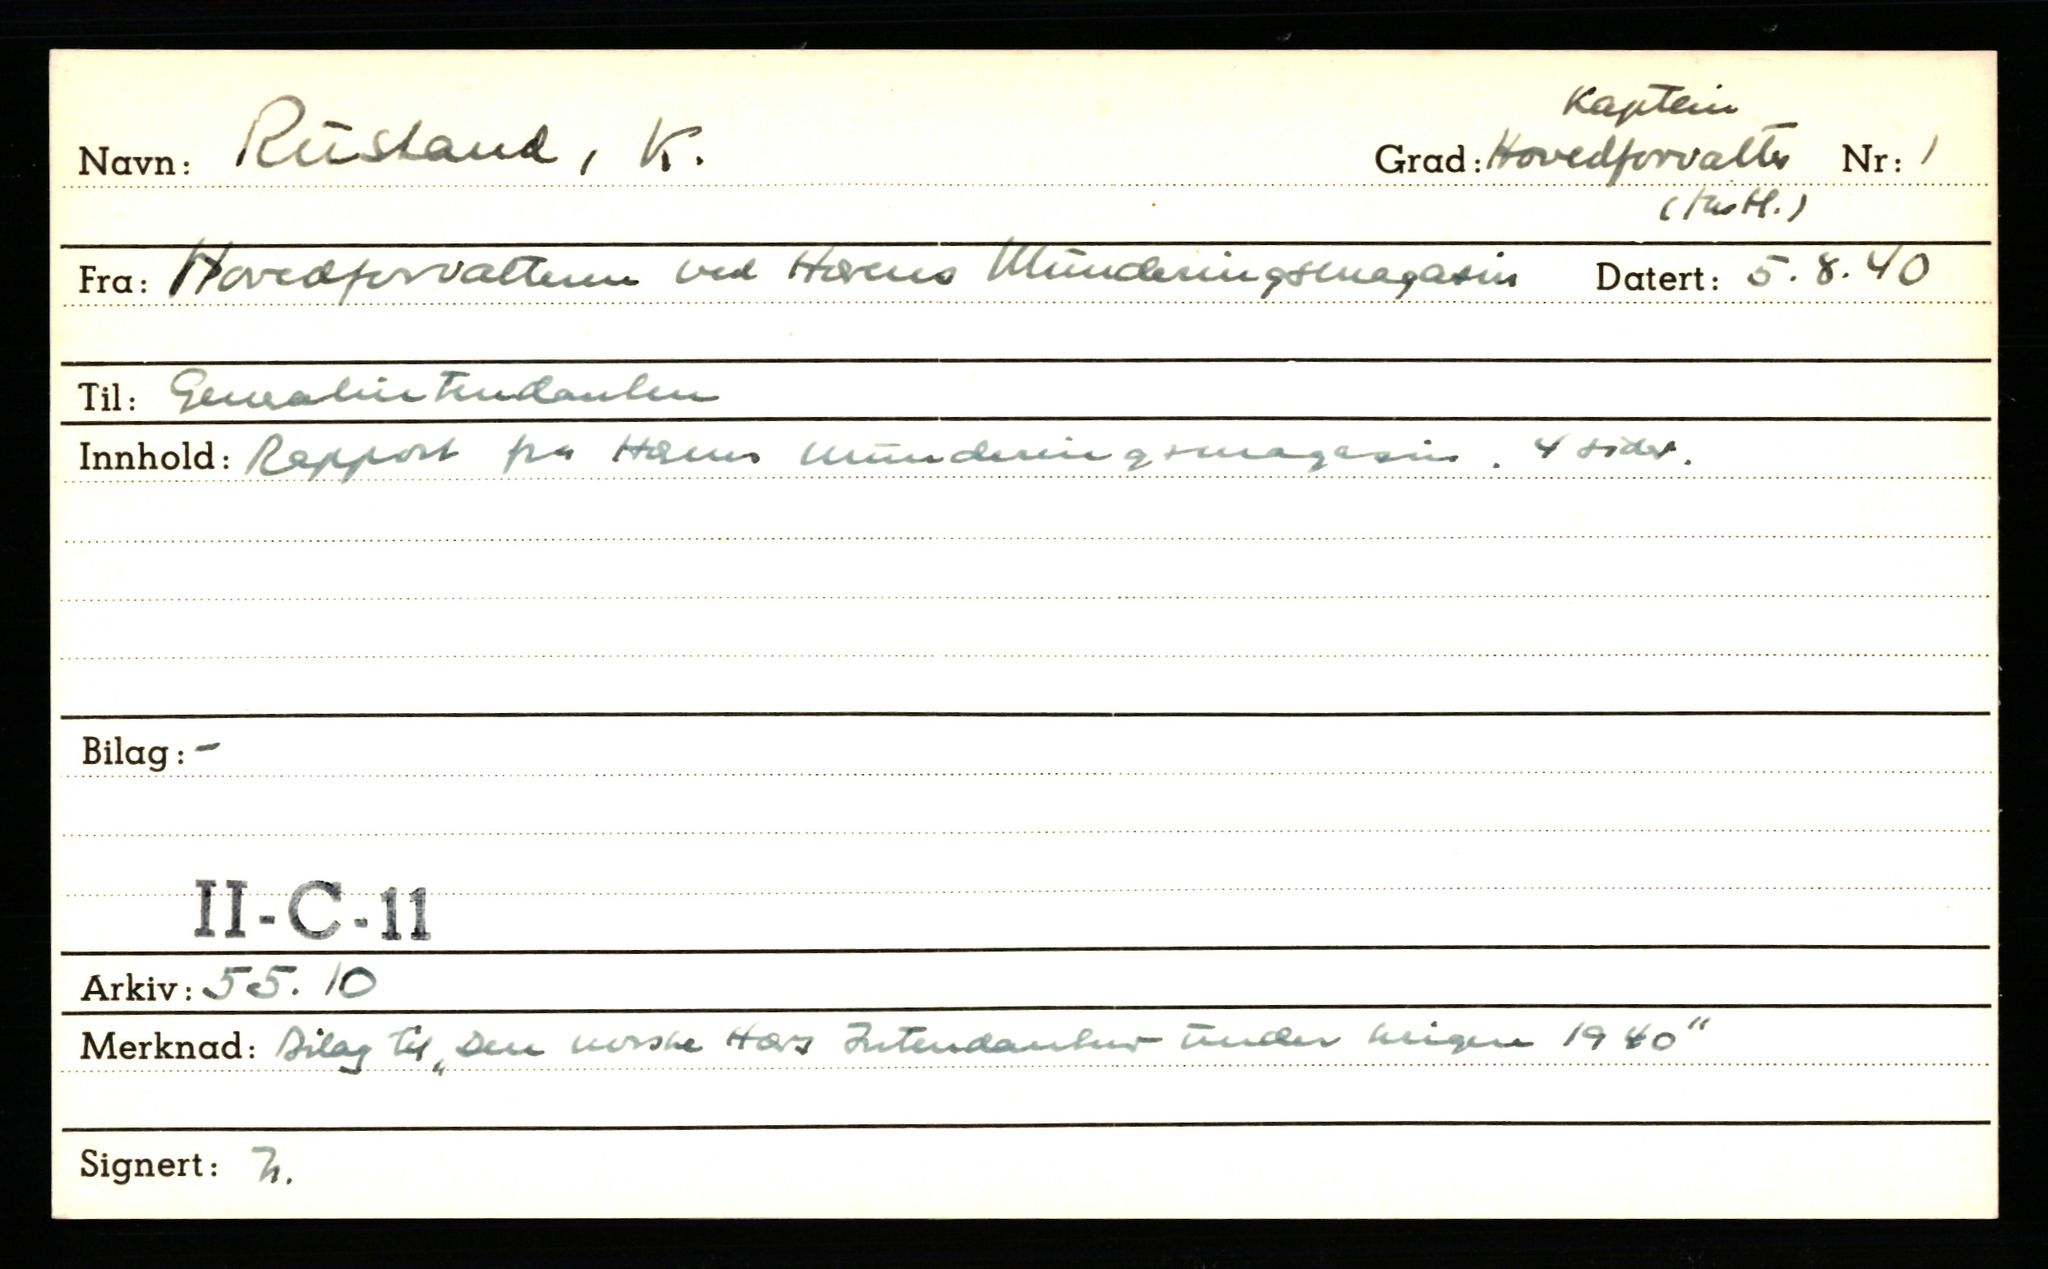 Kaptein
Navn: Rustand, K. Grad: Hovedforvalter Nr: 1
Fra: Hovedforvalteren ved Hærens Munderingsmagasin Datert: 5.8.40
Til: Generalintendanten
Innhold: Rapport fra Hærens munderingsmagasin. 4 sider.
Bilag: -
II-C-11
Arkiv: 55.10
Merknad: Bilag til „Den norske Hærs Intendantur under krigen 1940"
Signert: